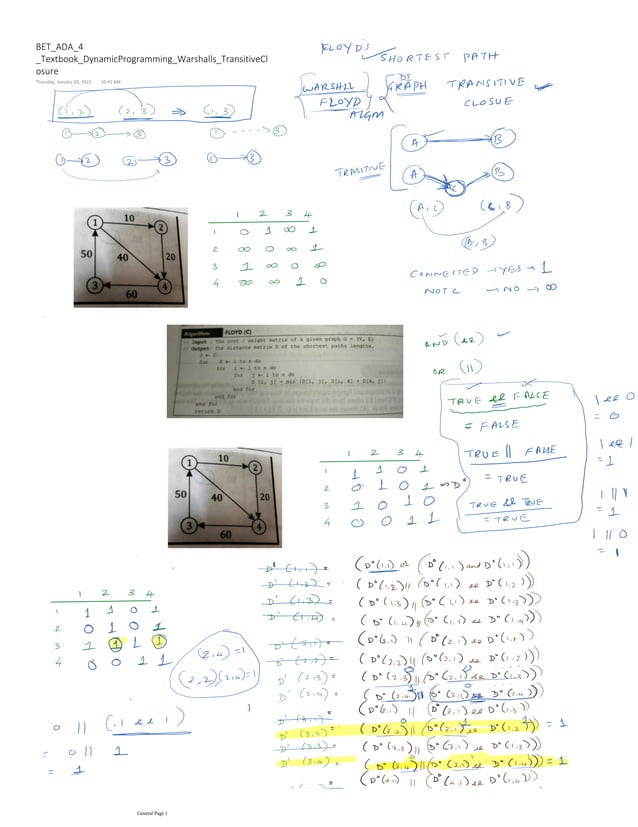 BET_ADA_4
_Textbook_DynamicProgramming_Warshalls_TransitiveCl
osure
Thursday, January 20, 2022 10:41 AM
FLOYD'S SHORTEST PATH
WARSHLL
FLOYD
ALGM
DI
GRAPH TRANSITIVE
CLOSUE
(1,2) (2,3) ⇒ (1,3)
1 2 3 1 3
1 2 2 3 1 3
TRASITIVE
A B
A C B
(A,C) (C,B)
(A,B)
CONNECTED → YES → 1
NOT C → NO → ∞
1 10 2
50 40 20
3 60 4
1 2 3 4
1 0 1 ∞ 1
2 ∞ 0 ∞ 1
3 1 ∞ 0 ∞
4 ∞ ∞ 1 0
Algorithm FLOYD (C)
// Input : The cost / weight matrix of a given graph G = (V, E)
// Output: The distance matrix D of the shortest paths lengths.
D ← C
for k ← 1 to n do
for i ← 1 to n do
for j ← 1 to n do
D [i, j] = min (D[i, j], D[i, k] + D[k, j])
end for
end for
end for
return D
AND (&&)
OR (||)
TRUE && FALSE
= FALSE
TRUE || FALSE
= TRUE
TRUE && TRUE
= TRUE
1 && 0
= 0
1 && 1
= 1
1 || 1
= 1
1 || 0
= 1
1 10 2
50 40 20
3 60 4
1 2 3 4
1 1 1 0 1
2 0 1 0 1 ⇒ D⁰
3 1 0 1 0
4 0 0 1 1
D' (1,1) = (D⁰(1,1) or (D⁰(1,1) and D⁰(1,1))
D' (1,2) = (D⁰(1,2) || (D⁰(1,1) && D⁰(1,2)))
D' (1,3) = (D⁰(1,3) || (D⁰(1,1) && D⁰(1,3)))
D' (1,4) = (D⁰(1,4) || (D⁰(1,1) && D⁰(1,4)))
D' (2,1) = (D⁰(2,1) || (D⁰(2,1) && D⁰(1,1))
D' (2,2) = (D⁰(2,2) || (D⁰(2,1) && D⁰(1,2)))
D' (2,3) = (D⁰(2,3) || (D⁰(2,1) && D⁰(1,3)))
D' (2,4) = (D⁰(2,4) || (D⁰(2,1) && D⁰(1,4)))
D' (3,1) = (D⁰(3,1) || (D⁰(3,1) && D⁰(1,1)))
D' (3,2) = (D⁰(3,2) || (D⁰(3,1) && D⁰(1,2))) = 1
D' (3,3) = (D⁰(3,3) || (D⁰(3,1) && D⁰(1,3)))
D' (3,4) = (D⁰(3,4) || (D⁰(3,1) && D⁰(1,4))) = 1
(D⁰(4,1) || (D⁰(4,1) && D⁰(1,4)))
1 2 3 4
1 1 1 0 1
2 0 1 0 1
3 1 1 1 1
4 0 0 1 1
(2,4) = 1
(2,2)(2,4) = 1
0 || (1 && 1)
= 0 || 1
= 1
General Page 1